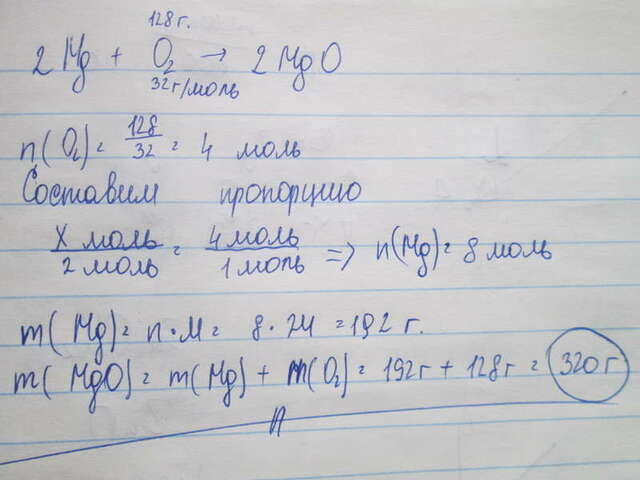 128 г.
2 Mg + O₂ → 2 MgO
32 г/моль
n(O₂) = 128/32 = 4 моль
Составим пропорцию
X моль/2 моль = 4 моль/1 моль => n(Mg) = 8 моль
m(Mg) = n·M = 8·24 = 192 г.
m(MgO) = m(Mg) + m(O₂) = 192г + 128г = 320 г